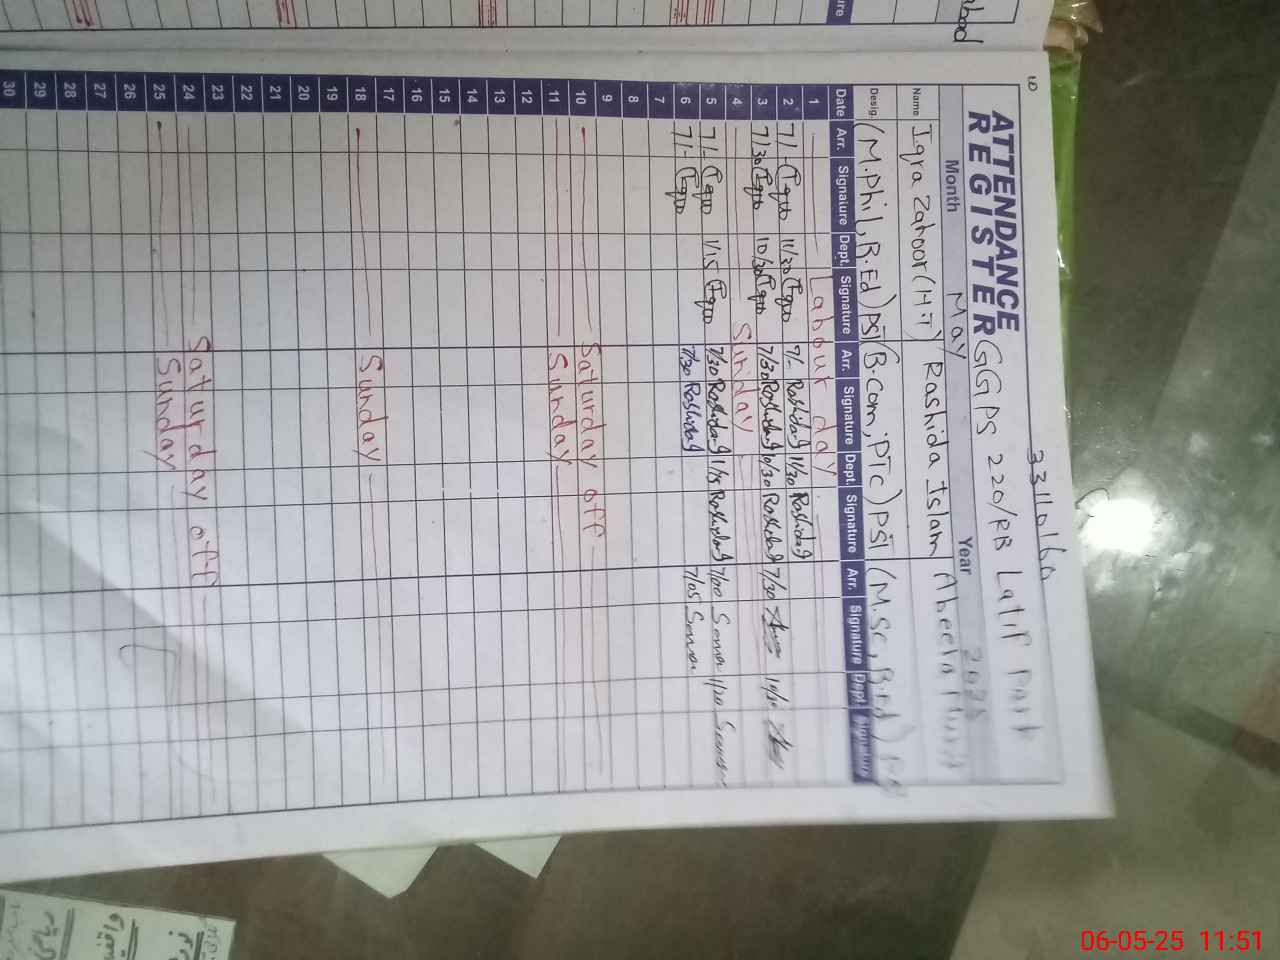 33110160
ATTENDANCE REGISTER GGPS 220/RB Latif Park
Month May Year 2025
Name Iqra Zahoor (H.T) Rashida Islam
Desig. (M.Phil, B.Ed) PST (B.Com, PTC) PST (M.Sc, B.Ed)
Date Arr. Signature Dept. Signature Arr. Signature Dept. Signature Arr. Signature Dept. Signature
1 Labour day
2 7/- Iqra 11/30 Iqra 7/- Rashida 11/30 Rashida
3 7/30 Iqra 10/30 Iqra 7/30 Rashida 10/30 Rashida 7/30 10/30
4 Sunday
5 7/- Iqra 1/15 Iqra 7/30 Rashida 1/15 Rashida 7/00 1/20
6 7/- Iqra 7/30 Rashida 7/05
7
8
9
10 Saturday off
11 Sunday
12
13
14
15
16
17
18 Sunday
19
20
21
22
23
24 Saturday off
25 Sunday
26
27
28
29
30
06-05-25 11:51